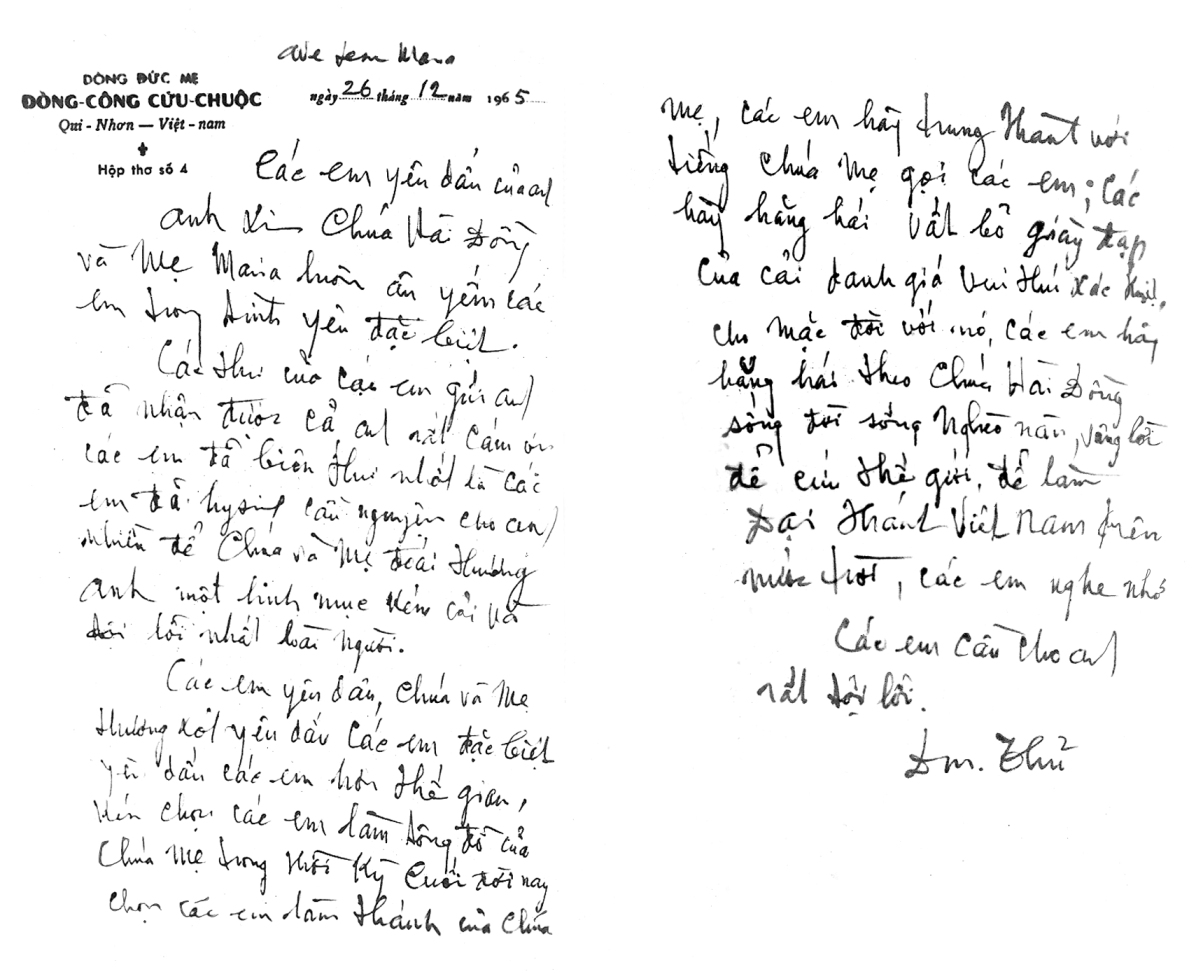 Ave Jesu Maria
DÒNG ĐỨC MẸ
ĐÒNG-CÔNG CỨU-CHUỘC
Qui - Nhơn — Việt - nam
Hộp thơ số 4
ngày 26 tháng 12 năm 1965
Các em yêu dấu của anh
anh xin Chúa Hài Đồng
và Mẹ Maria luôn ân yếm các
em trong tình yêu đặc biệt.
Các thư của các em gửi anh
đã nhận được cả anh rất cám ơn
các em đã biên thư nhất là các
em đã hy sinh cầu nguyện cho anh
nhiều để Chúa và Mẹ đoái thương
anh một linh mục kém cỏi và
tội lỗi nhất loài người.
Các em yêu dấu, Chúa và Mẹ
thương xót yêu dấu các em đặc biệt
yêu dấu các em hơn thế gian,
kén chọn các em làm tông đồ của
Chúa Mẹ trong thời kỳ cuối đời nay
chọn các em làm thánh của Chúa
Mẹ, các em hãy trung thành với
tiếng Chúa Mẹ gọi các em; các
hãy hăng hái vất bỏ giày đạp
của cải danh giá vui thú xác thịt,
cho mặc đời với nó, các em hãy
hăng hái theo Chúa Hài Đồng
sống đời sống nghèo nàn, vâng lời
để cứu thế giới, để làm
Đại thánh Việt Nam trên
nước trời, các em nghe nhớ
Các em cầu cho anh
rất tội lỗi.
Đm. Thu²